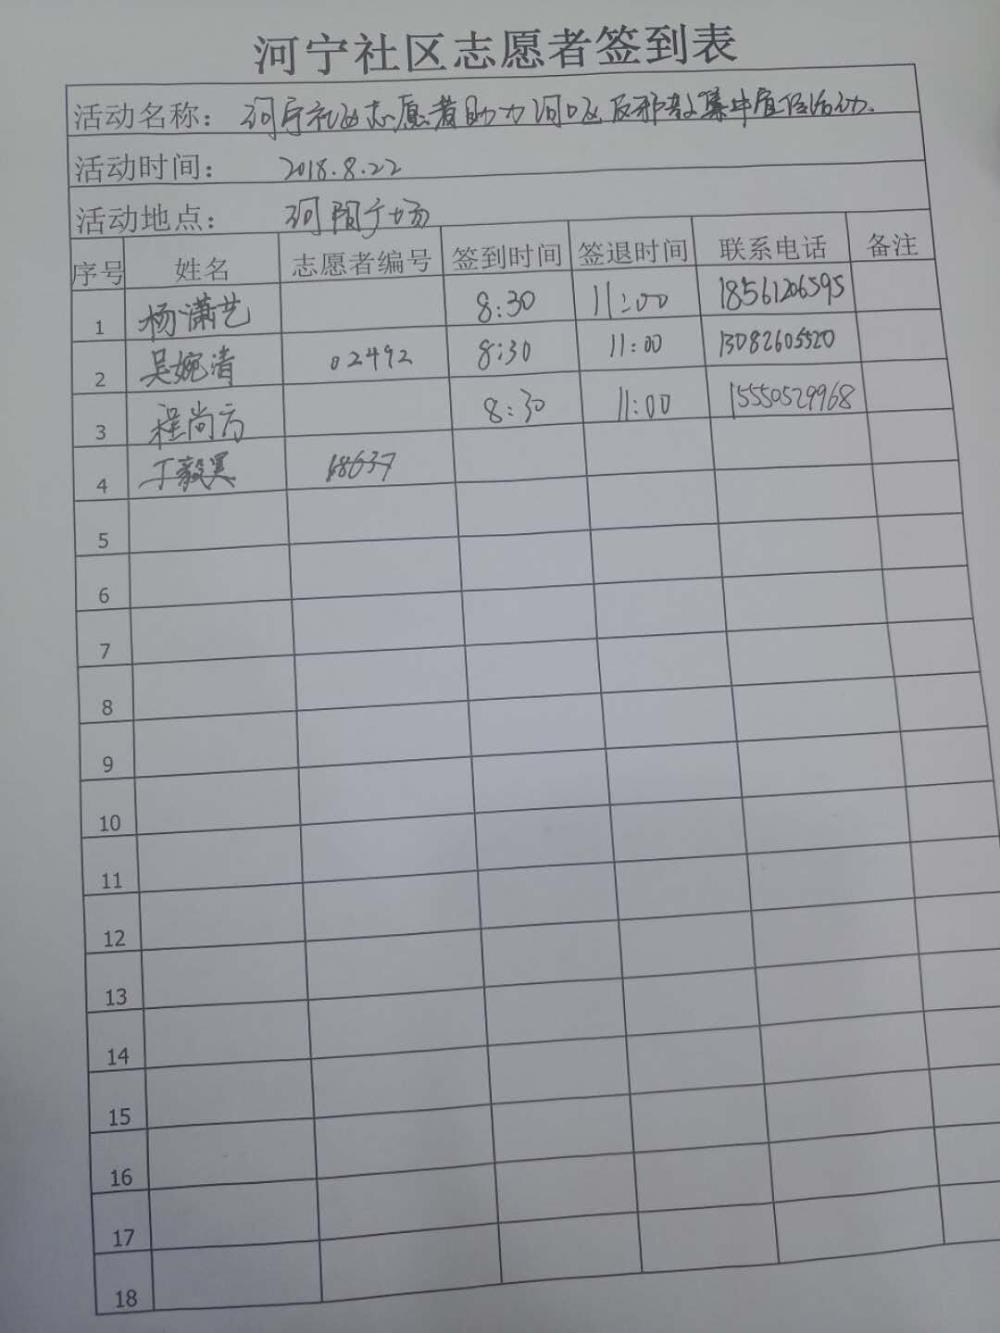 河宁社区志愿者签到表
活动名称: 河宁社区志愿者助力河口区反邪教集中宣传活动.
活动时间: 2018.8.22
活动地点: 河阳广场
序号 姓名 志愿者编号 签到时间 签退时间 联系电话 备注
1 杨潇艺 8:30 11:00 18561206595
2 吴婉清 02492 8:30 11:00 13082605520
3 程尚方 8:30 11:00 15550529968
4 丁毅 18637
5
6
7
8
9
10
11
12
13
14
15
16
17
18